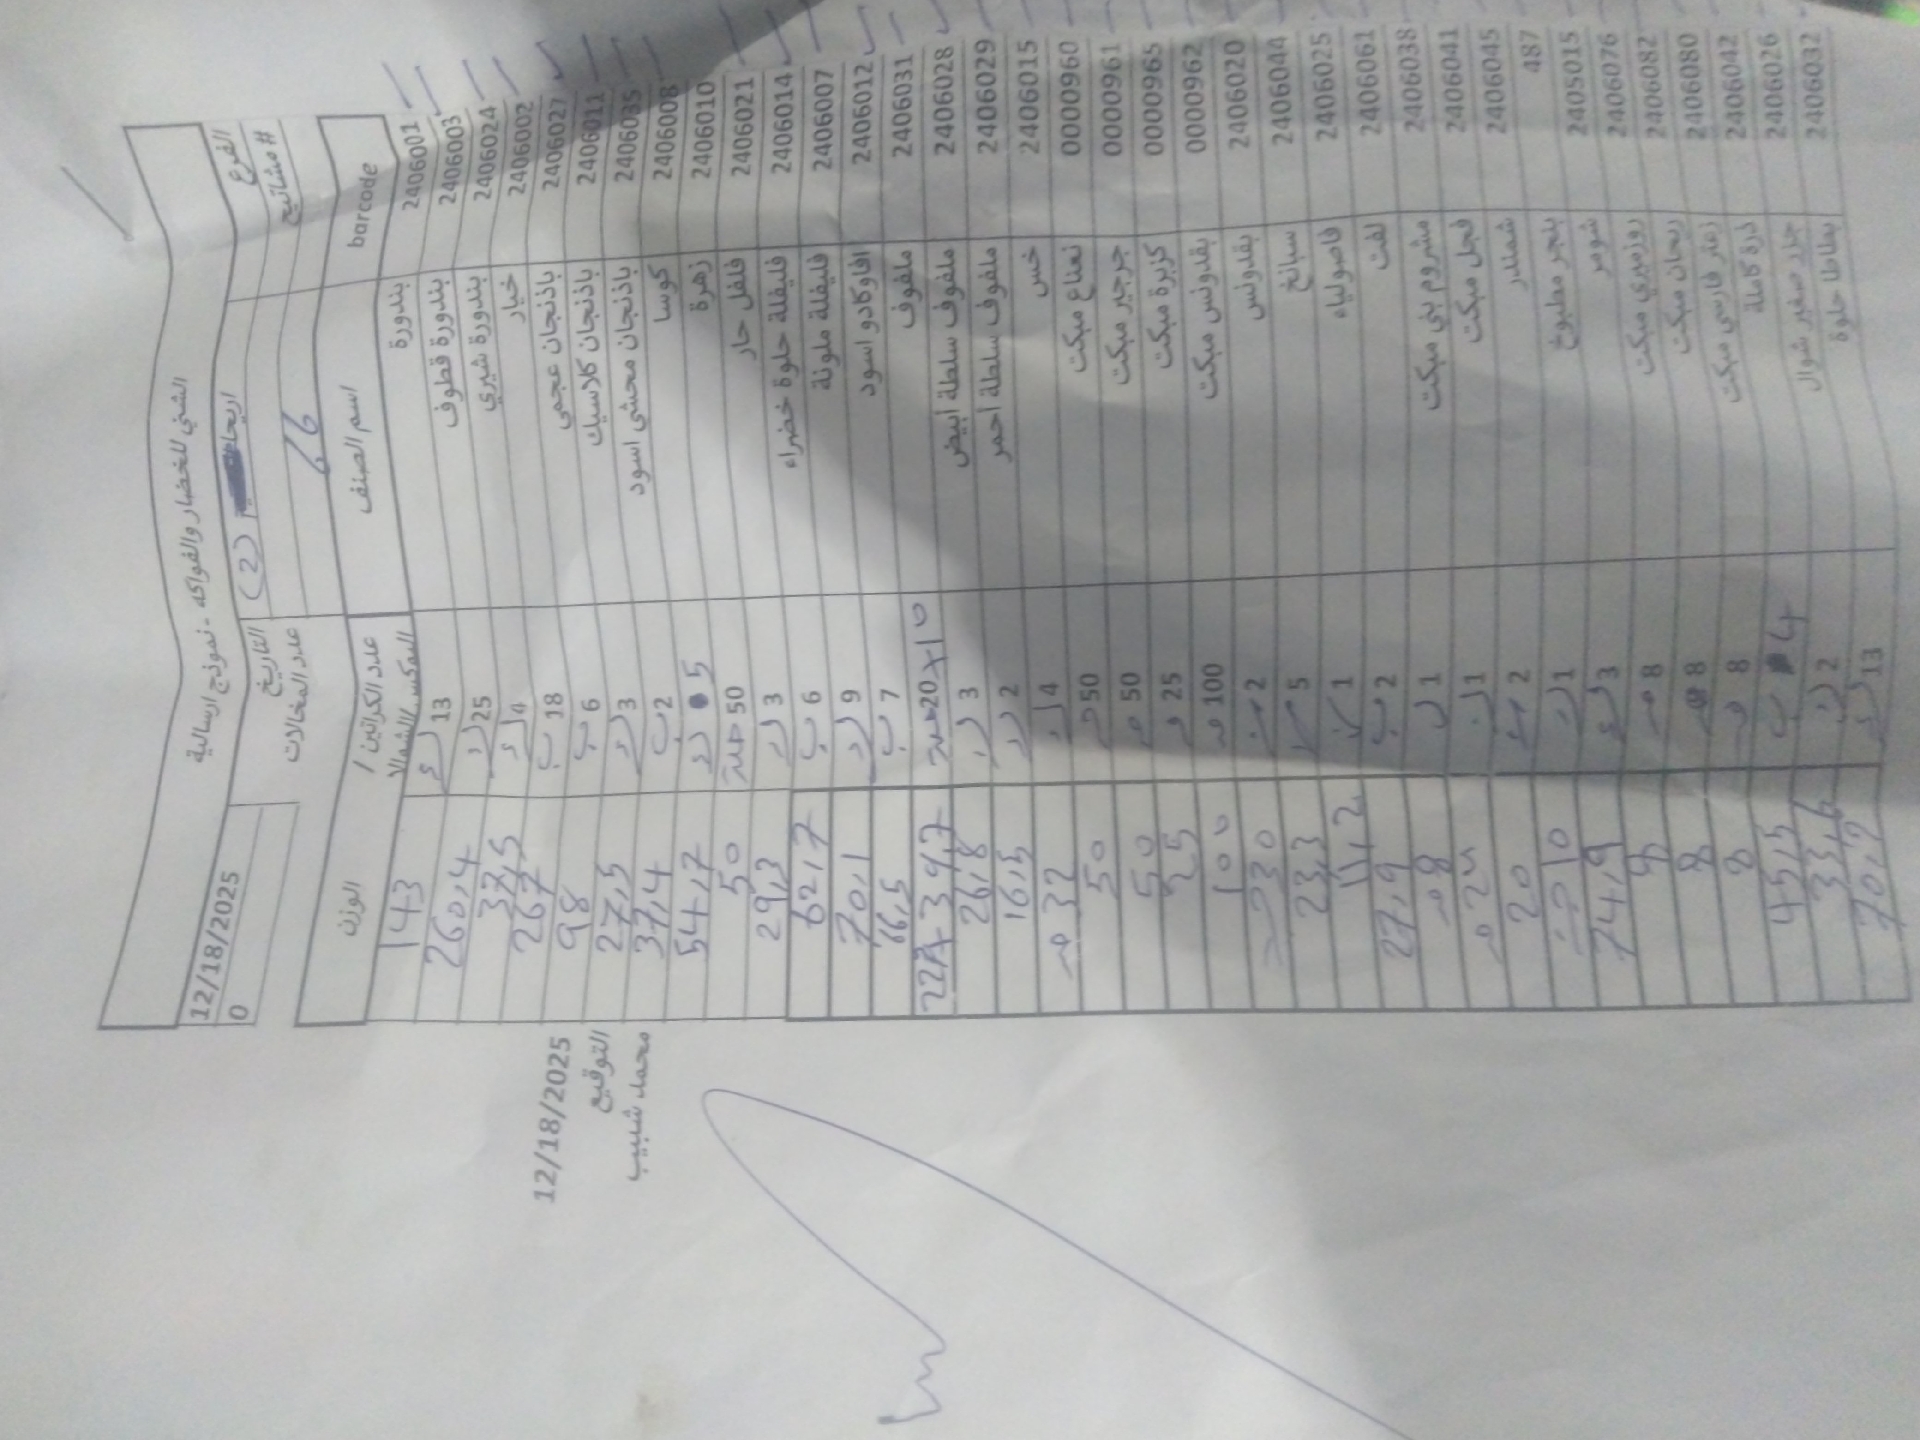 الشني للخضار والفواكه - نموذج ارسالية
الفرع اريحا (2) التاريخ 12/18/2025
# مشاتيح 66 عدد المخالات 0
barcode اسم الصنف عدد الكراتين / البوكس /الشوالا الوزن
2406001 بندورة 13 143
2406003 بندورة قطوف 25 260,4
2406024 بندورة شيري 4 37,5
2406002 خيار 18 ب 267
2406027 باذنجان عجمي 6 ب 98
2406011 باذنجان كلاسيك 3 27,5
2406035 باذنجان محشي اسود 2 ب 37,4
2406008 كوسا 5 54,7
2406010 زهرة 50 حبة 50
2406021 فلفل حار 3 29,3
2406014 فليفلة حلوة خضراء 6 ب 62,7
2406007 فليفلة ملونة 9 70,1
2406012 افوكادو اسود 7 ب 16,5
2406031 ملفوف 20+10 حبة
2406028 ملفوف سلطة ابيض 3 26,8
2406029 ملفوف سلطة احمر 2 16,5
2406015 خس 4 32
0000960 نعناع مبكت 50 50
0000961 جرجير مبكت 50 50
0000965 كزبرة مبكت 25 25
0000962 بقدونس مبكت 100 100
2406020 بقدونس 2 230
2406044 سبانخ 5 23,3
2406025 فاصولياء 1 11,2
2406061 لفت 2 ب 27,9
2406038 مشروم بني مبكت 1 8
2406041 فجل مبكت 1 24
2406045 شمندر 2 20
487 بنجر مطبوخ 1 10
2405015 شومر 3 74,9
2406076 روزميري مبكت 8 8
2406082 ريحان مبكت 8 8
2406080 زعتر فارسي مبكت 8 8
2406042 ذرة كاملة 4 ب 45,5
2406026 جزر صغير شوال 2 33,6
2406032 بطاطا حلوة 13 70,2
12/18/2025
التوقيع
محمد شبيب